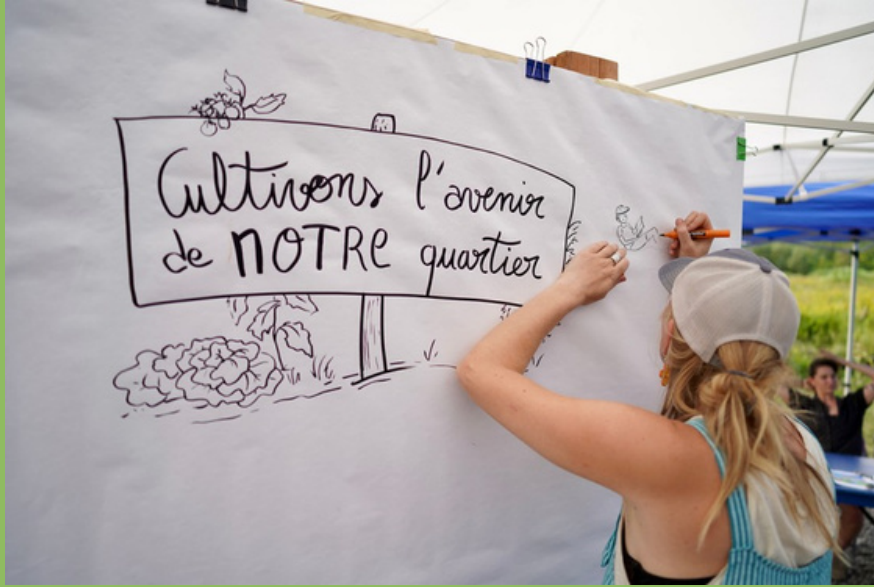 Cultivons l'avenir
de NOTRE quartier